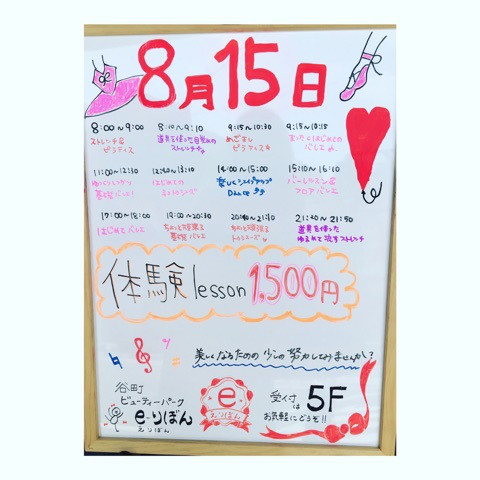 8月15日
8:00〜9:00
ストレッチ&
ピラティス
8:10〜9:10
道具を使った目覚めの
ストレッチ
9:15〜10:30
めざまし
ピラティス
9:15〜10:15
はじめての
バレエ
11:00〜12:10
ゆっくりしっかり
基礎バレエ
12:40〜13:10
はじめての
トゥシューズ
14:00〜15:00
楽しくシェイプアップ
Dance
15:10〜16:10
バーレッスン&
フロアバレエ
17:00〜18:00
はじめてバレエ
19:00〜20:30
ちょっと頑張る
基礎バレエ
20:40〜21:10
ちょっと頑張る
トゥシューズ
21:20〜21:50
道具を使った
ゆるめて流すストレッチ
体験lesson 1,500円
美しくなるための少しの努力してみませんか?
谷町
ビューティーパーク
e-りぼん
えりぼん
e
えりぼん
受付は5F
お気軽にどうぞ!!